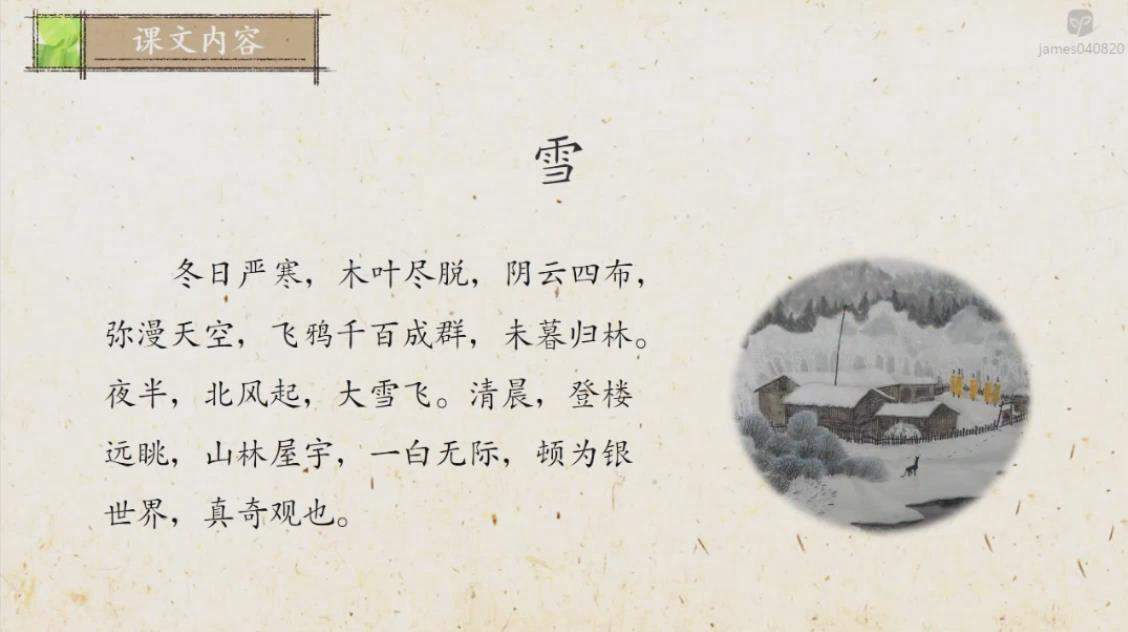 课文内容
james040820
雪
冬日严寒，木叶尽脱，阴云四布，
弥漫天空，飞鸦千百成群，未暮归林。
夜半，北风起，大雪飞。清晨，登楼
远眺，山林屋宇，一白无际，顿为银
世界，真奇观也。